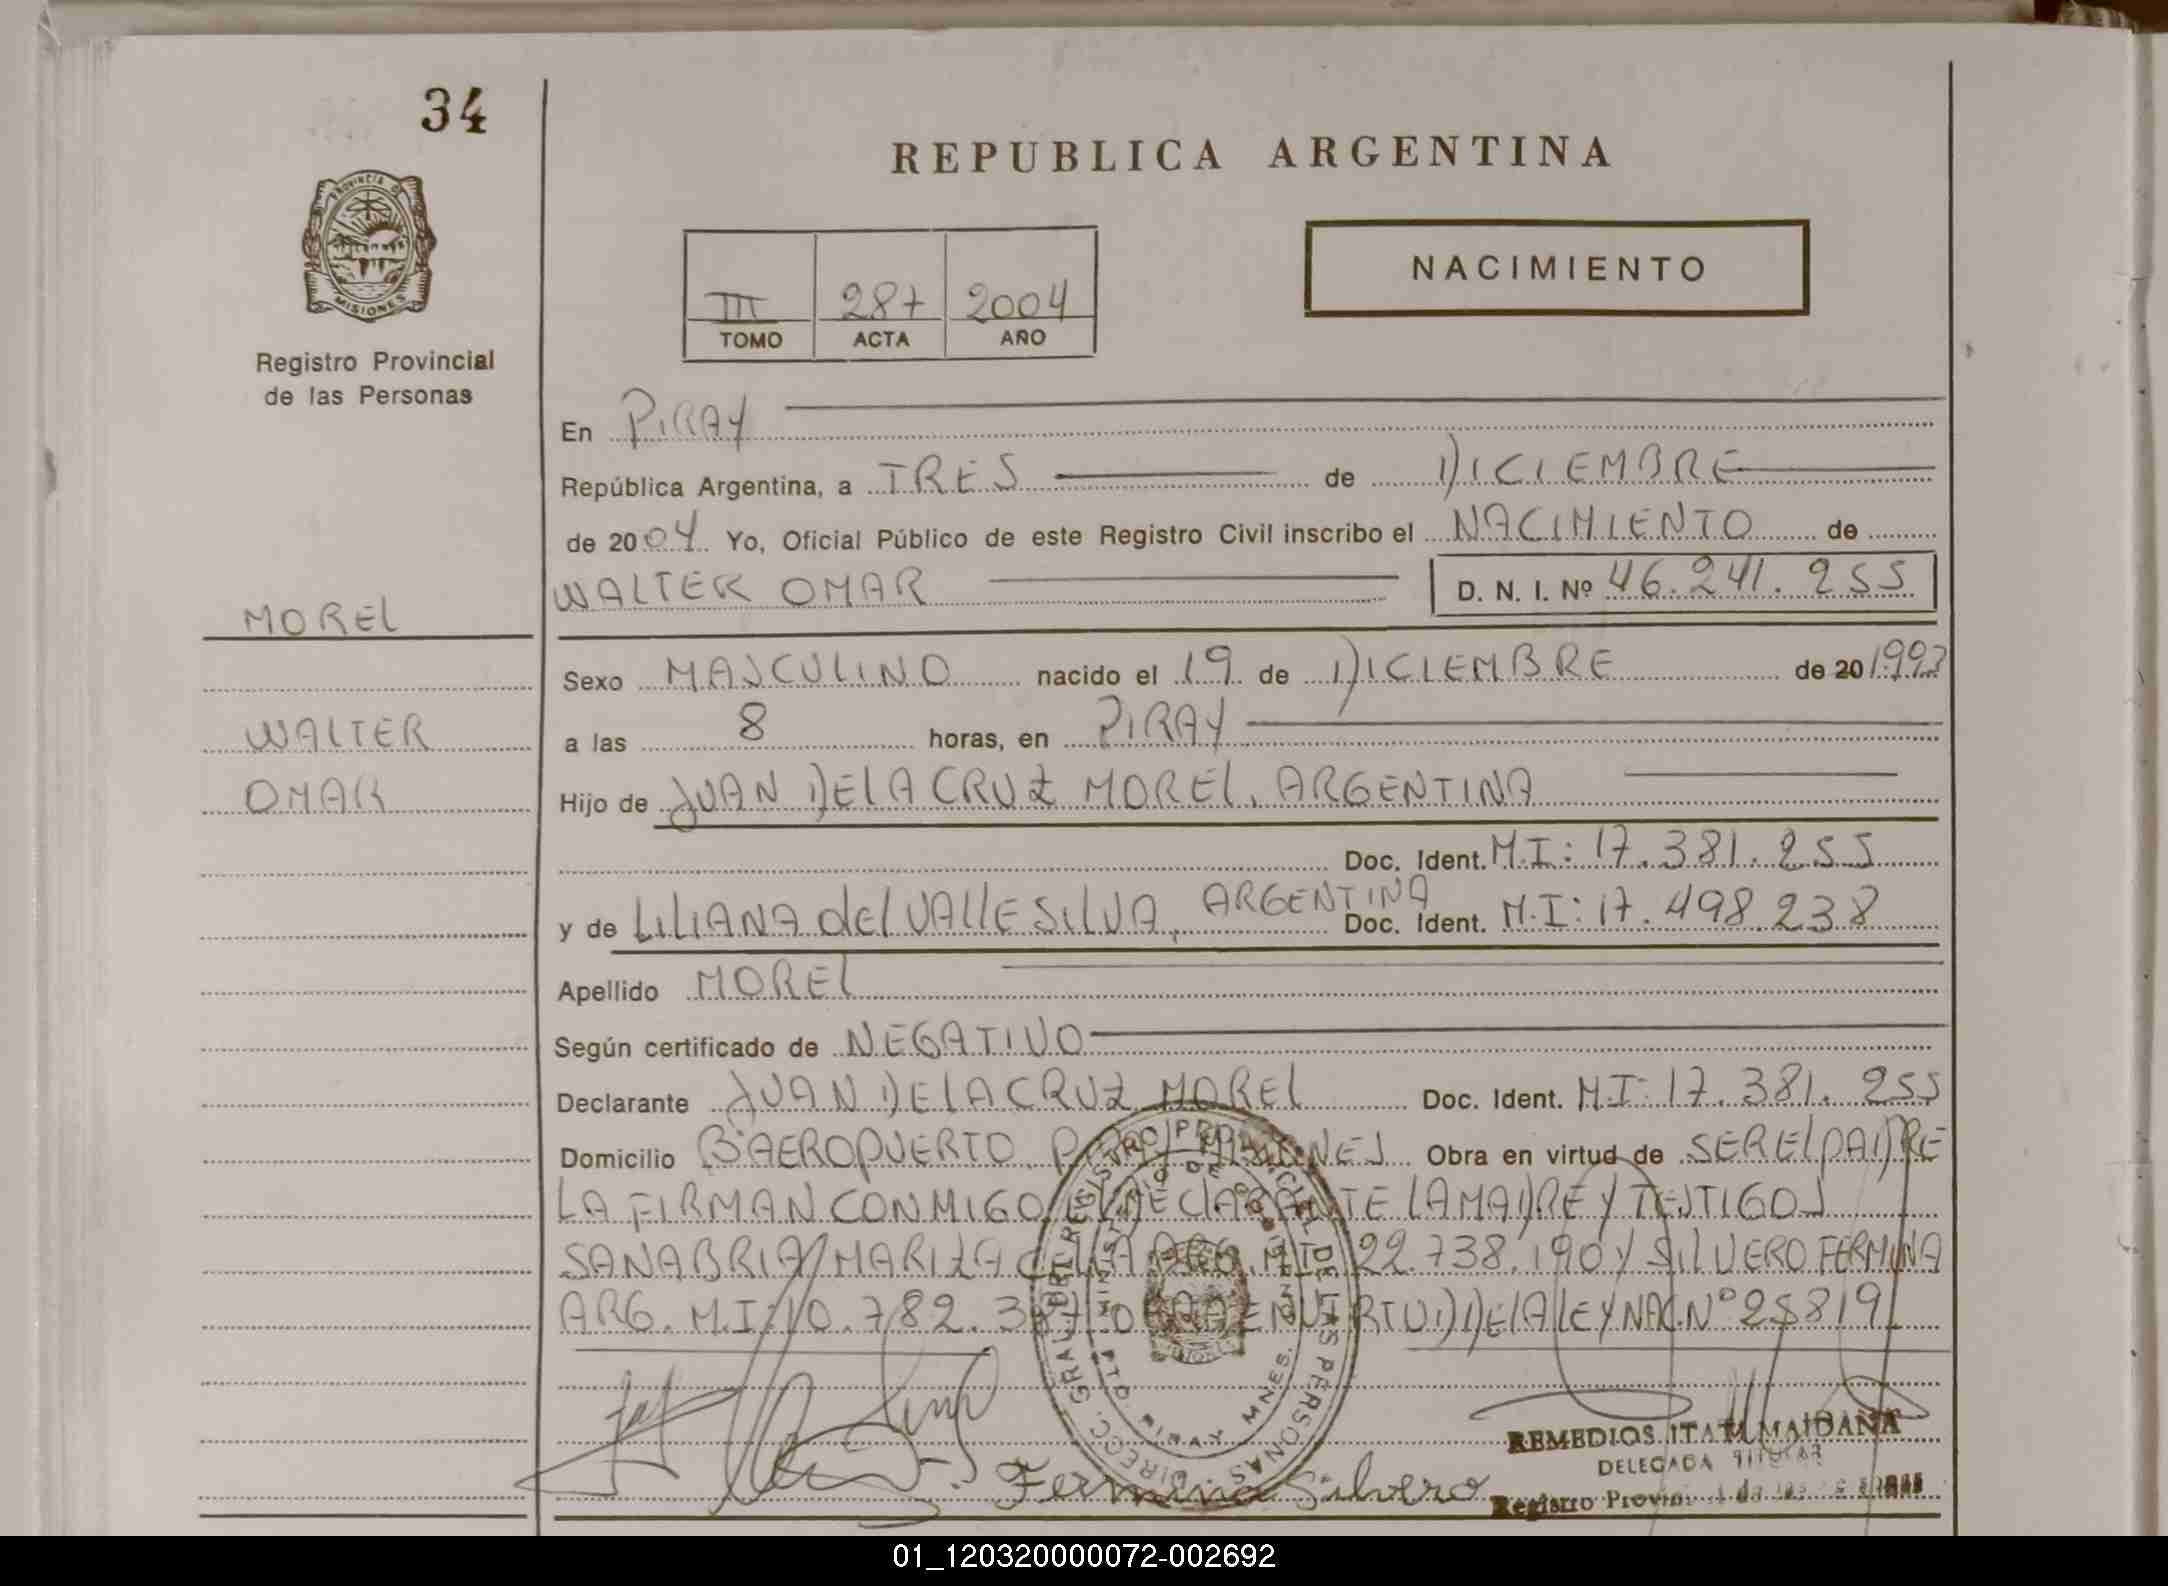 34
REPUBLICA ARGENTINA
PROVINCIA D
MISIONES
III 287 2004
TOMO ACTA AÑO
NACIMIENTO
Registro Provincial
de las Personas
En PIRAY
República Argentina, a TRES de DICIEMBRE
de 2004 Yo, Oficial Público de este Registro Civil inscribo el NACIMIENTO de
WALTER OMAR D. N. I. Nº 46.241.255
MOREL
Sexo MASCULINO nacido el 19 de DICIEMBRE de 20 1993
WALTER
a las 8 horas, en PIRAY
OMAR
Hijo de JUAN DE LA CRUZ MOREL, ARGENTINA
Doc. Ident. M.I: 17.381.255
y de LILIANA del VALLE SILVA, ARGENTINA Doc. Ident. M.I: 17.498.238
Apellido MOREL
Según certificado de NEGATIVO
Declarante JUAN DE LA CRUZ MOREL Doc. Ident. M.I: 17.381.255
Domicilio Bº AEROPUERTO Obra en virtud de SER EL PADRE
LA FIRMAN CONMIGO EL DECLARANTE LA MADRE Y TESTIGOS
SANABRIA MARIZA ARG. M.I. 22.738.190 Y SILVERO FERMINA
ARG. M.I: 10.782. OBRA EN VIRTUD DE LA LEY NAC. Nº 25819
DIRECC. GRAL. DEL REGISTRO PROVINCIAL DE LAS PERSONAS
MINISTERIO DE GOBIERNO
PTO. PIRAY MNES.
Fermina Silvero
REMEDIOS ITATI MAIDANA
DELEGADA TITULAR
Registro Provin. de las
01_120320000072-002692